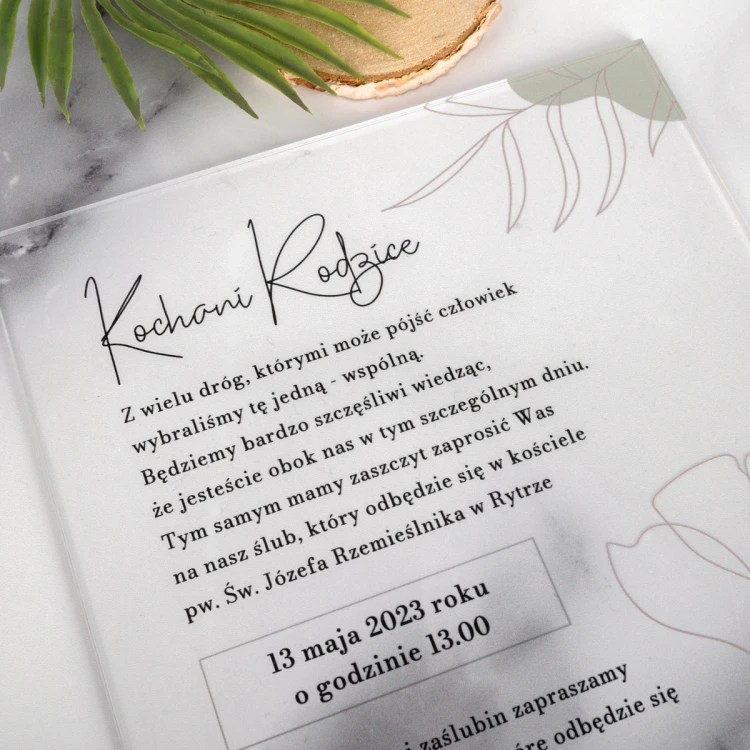 Kochani Rodzice
Z wielu dróg, którymi może pójść człowiek
wybraliśmy tę jedną - wspólną.
Będziemy bardzo szczęśliwi wiedząc,
że jesteście obok nas w tym szczególnym dniu.
Tym samym mamy zaszczyt zaprosić Was
na nasz ślub, który odbędzie się w kościele
pw. Św. Józefa Rzemieślnika w Rytrze
13 maja 2023 roku
o godzinie 13.00
i zaślubin zapraszamy
odbędzie się